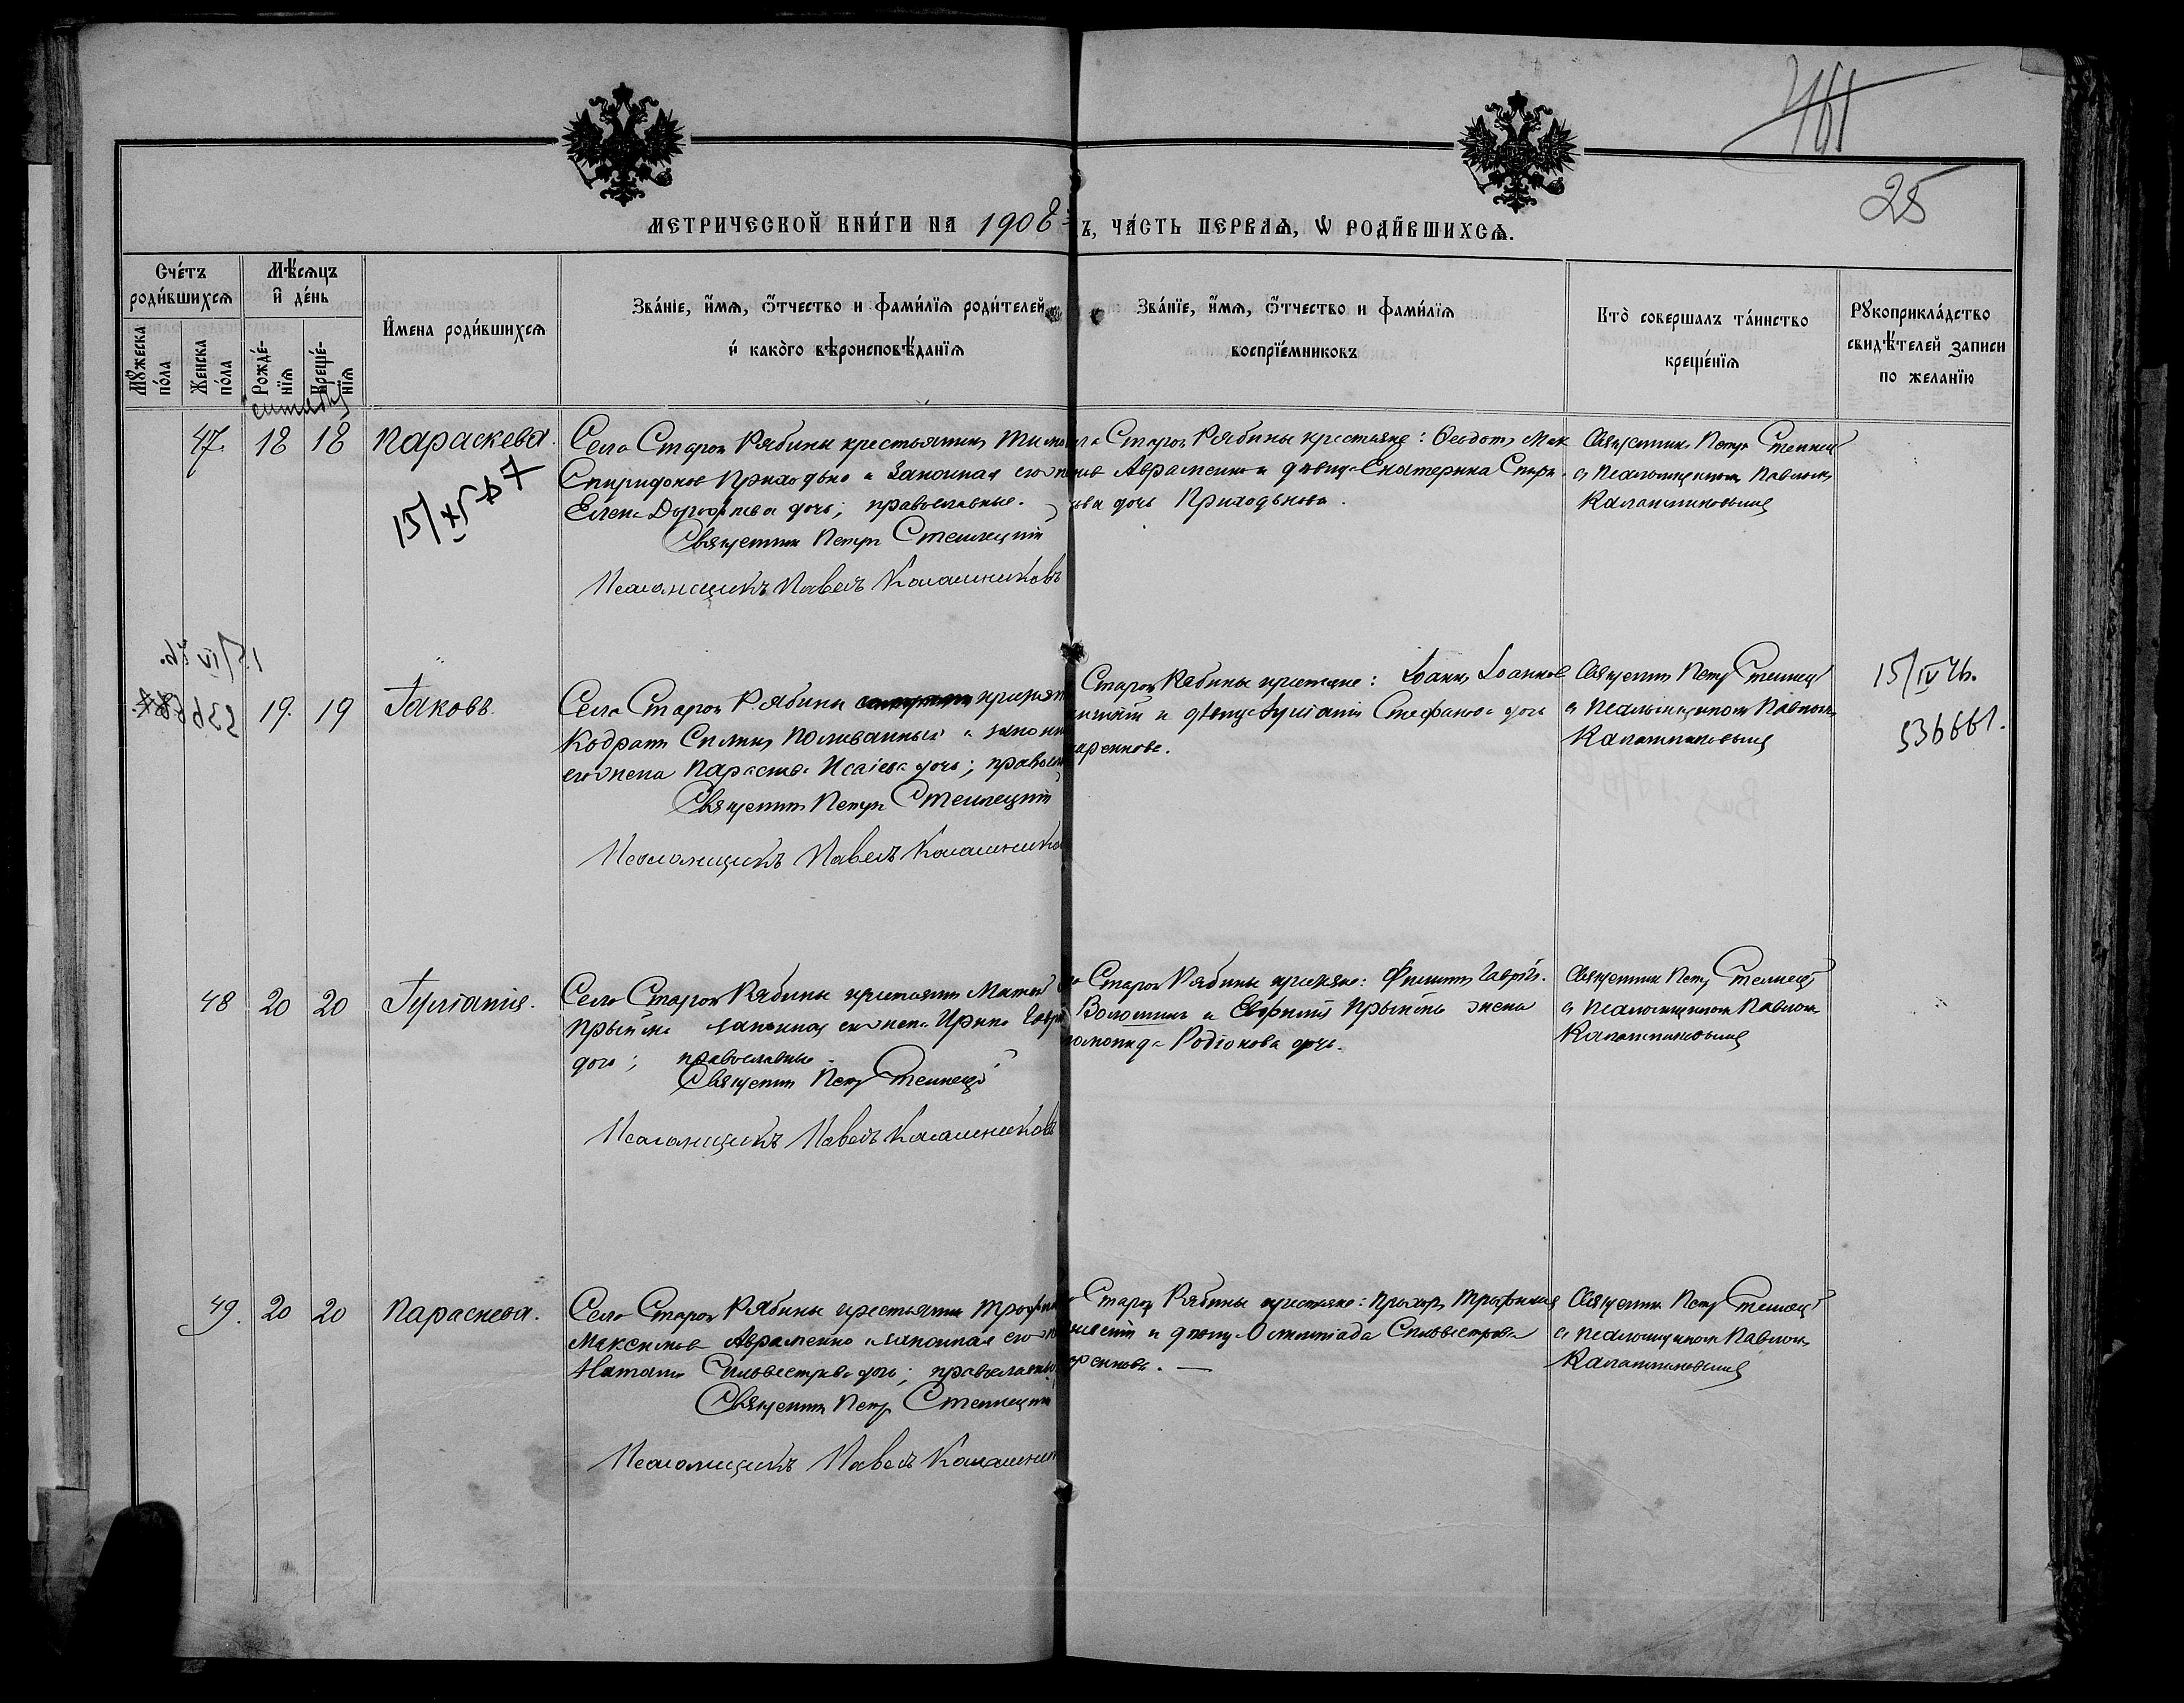 25
МЕТРИЧЕСКОЙ КНИ́ГИ НА 1908 Ъ, ЧА́СТЬ ПЕРВАѦ, Ѡ РОДИ́ВШИХСѦ.
Сче́тъ роди́вшихсѧ
Мѣ́сѧцъ и҆ де́нь
Мꙋжеска по́ла
Женска по́ла
Рожде́-нїѧ
Креще́-нїѧ
И҆мена роди́вшихсѧ
Зва́нїе, и҆́мѧ, ѻ҆́тчество и фами́лїѧ роди́телей
и҆ како́го вѣроисповѣ́данїѧ
Зва́нїе, и҆́мѧ, ѻ҆́тчество и фами́лїѧ
воспрїе́мниковъ
Кто̀ соверша́лъ та́инство
креще́нїѧ
Рꙋкоприкла́дство
свидѣ́телей записи
по жела́нїю
47. 18 18 Параскева.
Села Старой Рябины крестьянинъ
Спиридоновъ Приходько и законная его
Елена Дорофеева дочь; православные.
Священникъ Петръ Стеллецкій
Псаломщикъ Павелъ Калашниковъ
Старой Рябины крестьяне: Ѳеодотъ Мак
Авраменко и девица Екатерина Спири
дочь Приходькова.
Священникъ Петръ Стеллец
съ псаломщикомъ Павломъ
Калашниковымъ
19. 19 Іаковъ.
Села Старой Рябины
Кодратъ Поливанный и законн
его жена Параскева Исаіева дочь; правосл
Священникъ Петръ Стеллецкій
Псаломщикъ Павелъ Калашников
Старой Рябины крестьяне: Іоаннъ Іоаннов
и девица Іуліанія Стефанова дочь
Священникъ Петръ Стеллец
съ псаломщикомъ Павломъ
Калашниковымъ
15/IV 46.
536661.
48 20 20 Іуліанія.
Села Старой Рябины крестьянинъ Матѳей
законная его жена Ирина Гавр
дочь; православные.
Священникъ Петръ Стеллецкій
Псаломщикъ Павелъ Калашниковъ
Старой Рябины крестьяне: Филиппъ Гаврі
Волошинъ и жена
Родіонова дочь.
Священникъ Петръ Стеллец
съ псаломщикомъ Павломъ
Калашниковымъ
49. 20 20 Параскева.
Села Старой Рябины крестьянинъ Трофим
Максимовъ Авраменко и законная его
Наталія Сильвестрова дочь; православны
Священникъ Петръ Стеллецкій
Псаломщикъ Павелъ Калашник
Старой Рябины крестьяне: Прохоръ Трофимов
и девица Олимпіада Сильвестрова
Священникъ Петръ Стеллец
съ псаломщикомъ Павломъ
Калашниковымъ